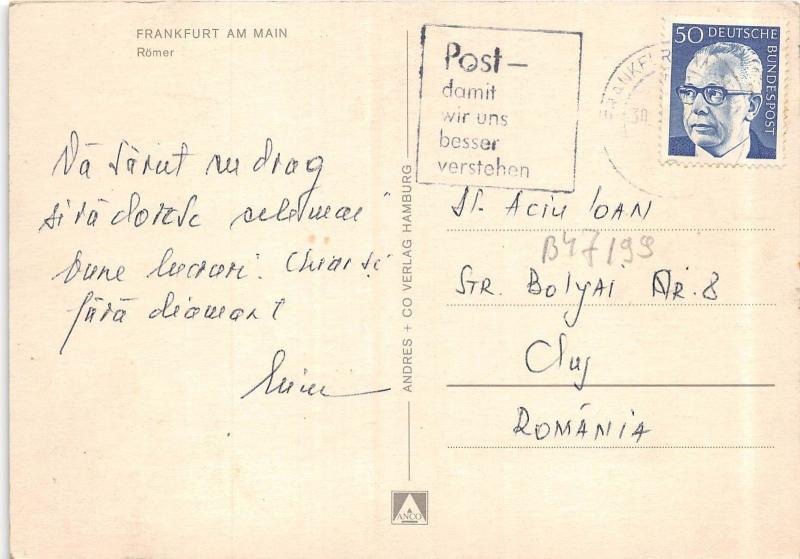 FRANKFURT AM MAIN
Römer
Vă sărut cu drag
si vă doresc cele mai
bune lucruri. Chiar si
fără diamant
ANDRES + CO VERLAG HAMBURG
ANCO
Post-
damit
wir uns
besser
verstehen
FRANKFURT
30
50 DEUTSCHE BUNDESPOST
Aciu IOAN
B47/99
STR. Bolyai Nr. 8
Cluj
ROMÂNIA